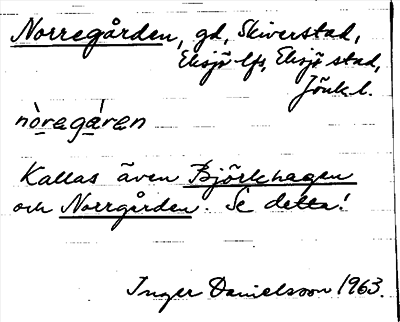 Norregården, gd, Skiverstad,
Eksjö lfs, Eksjö stad,
Jönk l.
nòragáren
Kallas även Björkhagen
och Norrgården. Se detta!
Inger Danielsson 1963.